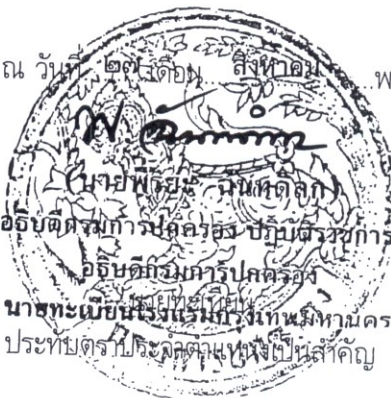 ณ วันที่ ๒๗ เดือน สิงหาคม พ
(นายพีรพล
อธิบดีกรมการปกครอง ปฏิบัติราชการ
อธิบดีกรมการปกครอง
นายทะเบียน
นายทะเบียนโรงแรมกรุงเทพมหานคร
ประทับตราประจำตำแหน่งเป็นสำคัญ